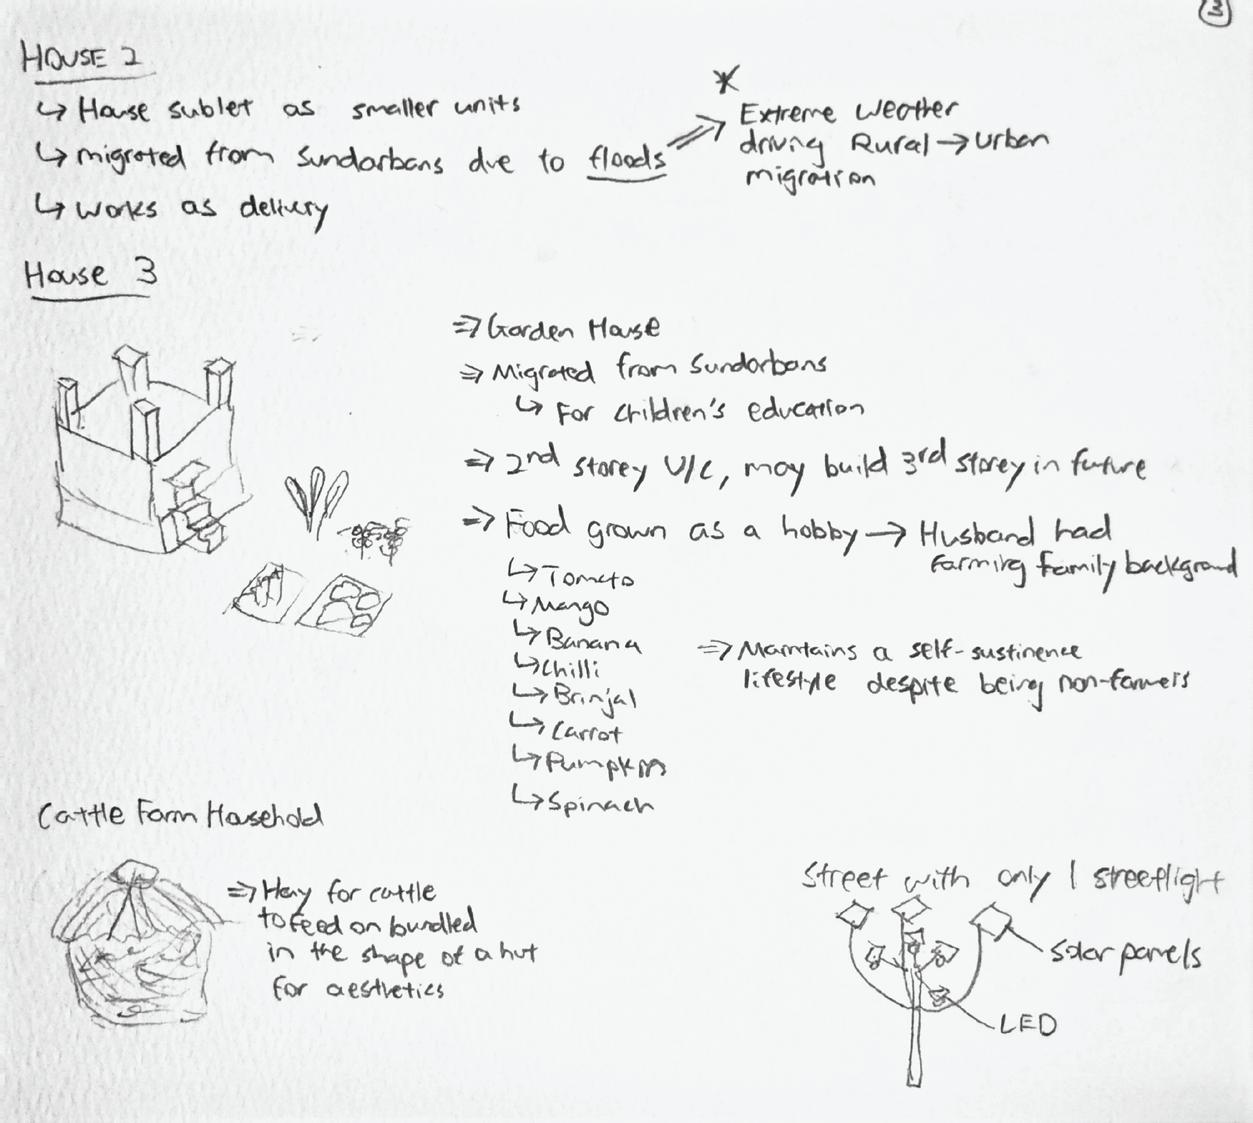 3
HOUSE 2
↳ House sublet as smaller units
↳ migrated from Sundarbans due to floods
↳ works as delivery
*
Extreme weather
driving Rural → Urban
migration
House 3
⇒ Garden House
⇒ Migrated from Sundarbans
↳ For children's education
⇒ 2nd storey U/C, may build 3rd storey in future
⇒ Food grown as a hobby → Husband had
farming family background
↳ Tomato
↳ Mango
↳ Banana
↳ Chilli
↳ Brinjal
↳ Carrot
↳ Pumpkin
↳ Spinach
⇒ Maintains a self-sustinence
lifestyle despite being non-farmers
Cattle Farm Household
⇒ Hay for cattle
to feed on bundled
in the shape of a hut
for aesthetics
Street with only 1 streetlight
Solar panels
LED